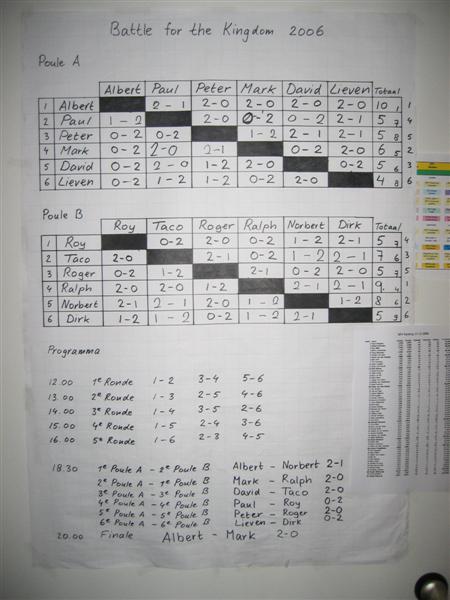 Battle for the Kingdom 2006
Poule A
Albert Paul Peter Mark David Lieven Totaal
1 Albert 2-1 2-0 2-0 2-0 2-0 10 1 1
2 Paul 1-2 2-0 0-2 0-2 2-1 5 7 4
3 Peter 0-2 0-2 1-2 2-1 2-1 5 8 5
4 Mark 0-2 2-0 2-1 0-2 2-0 6 5 2
5 David 0-2 2-0 1-2 2-0 0-2 5 6 3
6 Lieven 0-2 1-2 1-2 0-2 2-0 4 8 6
Poule B
Roy Taco Roger Ralph Norbert Dirk Totaal
1 Roy 0-2 2-0 0-2 1-2 2-1 5 7 4
2 Taco 2-0 2-1 0-2 1-2 2-1 7 6 3
3 Roger 0-2 1-2 2-1 0-2 2-0 5 7 5
4 Ralph 2-0 2-0 1-2 2-1 2-1 9 4 1
5 Norbert 2-1 2-1 2-0 1-2 1-2 8 6 2
6 Dirk 1-2 1-2 0-2 1-2 2-1 5 9 6
Programma
12.00 1e Ronde 1-2 3-4 5-6
13.00 2e Ronde 1-3 2-5 4-6
14.00 3e Ronde 1-4 3-5 2-6
15.00 4e Ronde 1-5 2-4 3-6
16.00 5e Ronde 1-6 2-3 4-5
18.30 1e Poule A - 2e Poule B Albert - Norbert 2-1
2e Poule A - 1e Poule B Mark - Ralph 2-0
3e Poule A - 3e Poule B David - Taco 2-0
4e Poule A - 4e Poule B Paul - Roy 0-2
5e Poule A - 5e Poule B Peter - Roger 2-0
6e Poule A - 6e Poule B Lieven - Dirk 0-2
20.00 Finale Albert - Mark 2-0